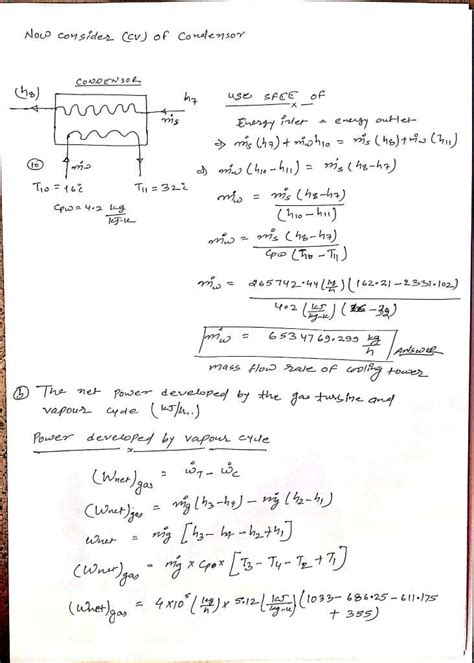 Now consider (CV) of Condensor
CONDENSOR
(h8)
h7
ṁs
(10)
ṁw
T10 = 16°c
T11 = 32°c
Cpw = 4.2 kg/kJ-k
use SFEE of
Energy inlet = energy outlet
⇒ ṁs (h7) + ṁw h10 = ṁs (h8) + ṁw (h11)
⇒ ṁw (h10 - h11) = ṁs (h8 - h7)
ṁw = ṁs (h8 - h7) / (h10 - h11)
ṁw = ṁs (h8 - h7) / Cpw (T10 - T11)
ṁw = 265742.44 (kg/h) (162.21 - 2331.102) / 4.2 (kJ/kg-k) (16 - 32)
ṁw = 6534769.299 kg/h Answer
mass flow rate of cooling tower
(b) The net power developed by the gas turbine and
vapour cycle (kJ/h..)
Power developed by vapour cycle
(Wnet)gas = ẇT - ẇc
(Wnet)gas = ṁg (h3 - h4) - ṁg (h2 - h1)
Wnet = ṁg [h3 - h4 - h2 + h1]
(Wnet)gas = ṁg × Cpa × [T3 - T4 - T2 + T1]
(Wnet)gas = 4×10⁵ (kg/h) × 5.12 (kJ/kg-k) (1033 - 686.25 - 611.175
+ 355)